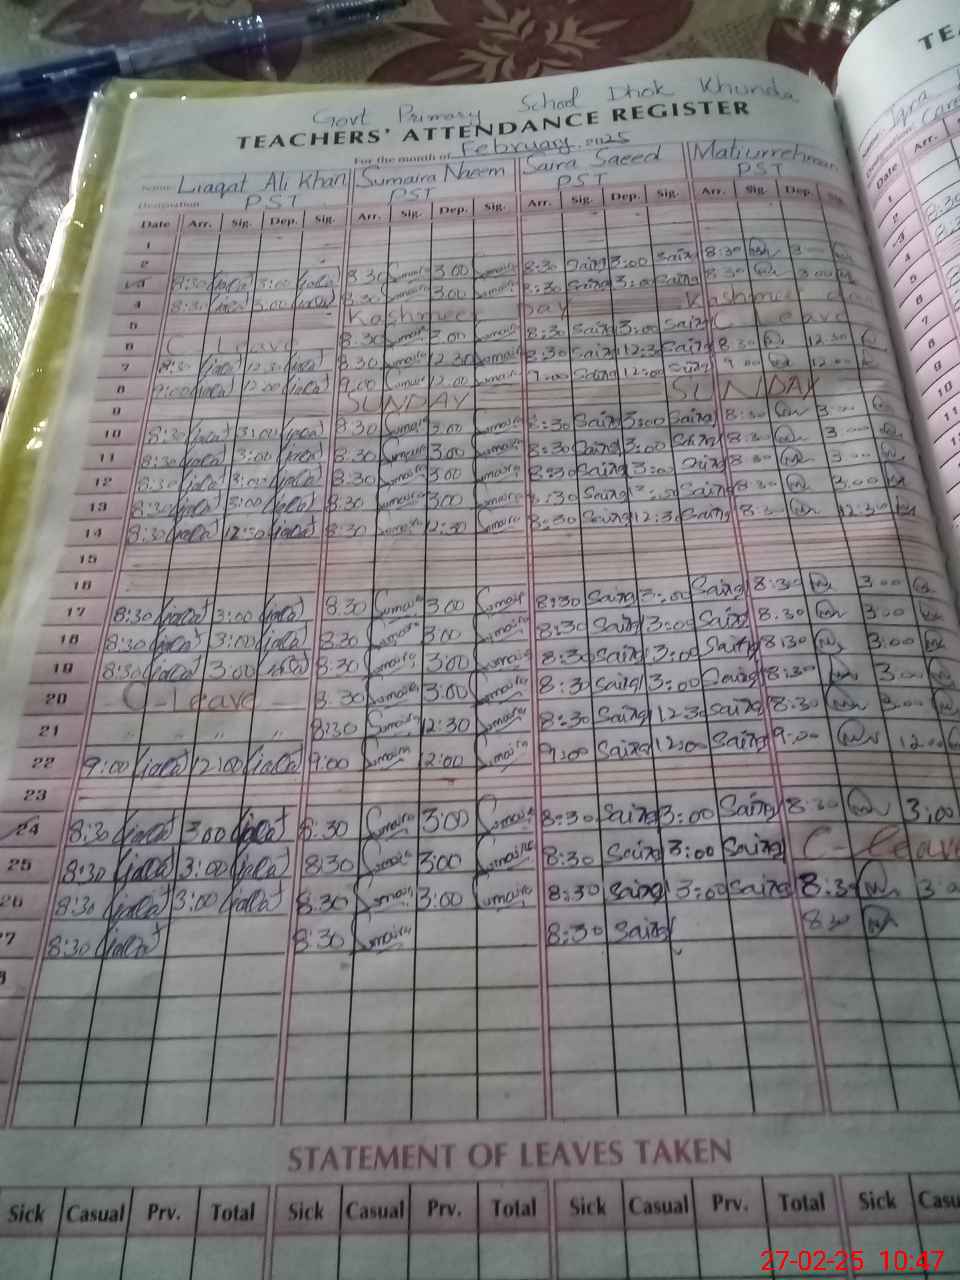 Govt Primary School Dhok Khunda
TEACHERS' ATTENDANCE REGISTER
For the month of February 2025
Name Liaqat Ali Khan Sumaira Naeem Saira Saeed Matiurrehman
Designation PST PST PST PST
Date Arr. Sig. Dep. Sig. Arr. Sig. Dep. Sig. Arr. Sig. Dep. Sig. Arr. Sig. Dep.
1
2
3 8:30 3:00 8.30 Sumaira 3.00 Sumaira 8:30 Saira 3:00 Saira 8:30 3
4 8:30 3:00 8.30 Sumaira 3.00 Sumaira 8:30 Saira 3:00 Saira 8.30 3.00
5 Kashmeer Day Kashmeer
6 C Leave 8.30 Sumaira 3.00 Sumaira 8:30 Saira 3:00 Saira C Leave
7 8:30 12:30 8.30 Sumaira 12.30 Sumaira 8:30 Saira 12:30 Saira 8.30 12.30
8 9:00 12:00 9.00 Sumaira 12.00 Sumaira 9:00 Saira 12:00 Saira 9.00 12.00
9 SUNDAY SUNDAY
10 8:30 3:00 8.30 Sumaira 3.00 Sumaira 8:30 Saira 3:00 Saira 8:30 3
11 8:30 3:00 8.30 Sumaira 3.00 Sumaira 8:30 Saira 3:00 Saira 8:30 3
12 8:30 3:00 8.30 Sumaira 3.00 Sumaira 8:30 Saira 3:00 Saira 8:30 3
13 8:30 3:00 8.30 Sumaira 3.00 Sumaira 8:30 Saira Saira 8.30 3.00
14 8:30 12:30 8.30 Sumaira 12:30 Sumaira 8:30 Saira 12:30 Saira 8:30 12:30
15
16
17 8:30 3:00 8.30 Sumaira 3.00 Sumaira 8:30 Saira 3:00 Saira 8:30 3.00
18 8:30 3:00 8.30 Sumaira 3.00 Sumaira 8:30 Saira 3:00 Saira 8.30 3.00
19 8:30 3:00 8:30 Sumaira 3:00 Sumaira 8:30 Saira 3:00 Saira 8:30 3:00
20 C-Leave 8.30 Sumaira 3:00 Sumaira 8:30 Saira 3:00 Saira 8:30 3.00
21 " " " " 8:30 Sumaira 12:30 Sumaira 8:30 Saira 12:30 Saira 8:30 3:00
22 9:00 12:00 9:00 Sumaira 12:00 Sumaira 9:00 Saira 12:00 Saira 9:00 12:00
23
24 8:30 3:00 8:30 Sumaira 3:00 Sumaira 8:30 Saira 3:00 Saira 8:30 3:00
25 8:30 3:00 8:30 Sumaira 3:00 Sumaira 8:30 Saira 3:00 Saira C-leave
26 8:30 3:00 8:30 Sumaira 3:00 Sumaira 8:30 Saira 3:00 Saira 8:30
7 8:30 8:30 Sumaira 8:30 Saira 8:30
STATEMENT OF LEAVES TAKEN
Sick Casual Prv. Total Sick Casual Prv. Total Sick Casual Prv. Total Sick Casu
27-02-25 10:47